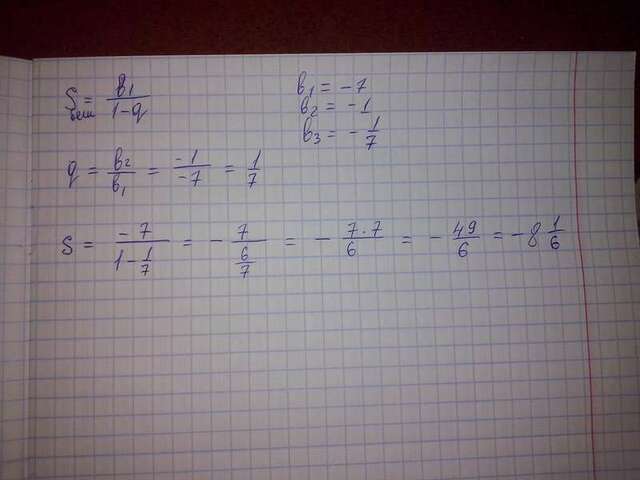 S беск = b₁/(1-q)
b₁ = -7
b₂ = -1
b₃ = -1/7
q = b₂/b₁ = -1/-7 = 1/7
S = -7/(1-1/7) = -7/(6/7) = -7·7/6 = -49/6 = -8 1/6